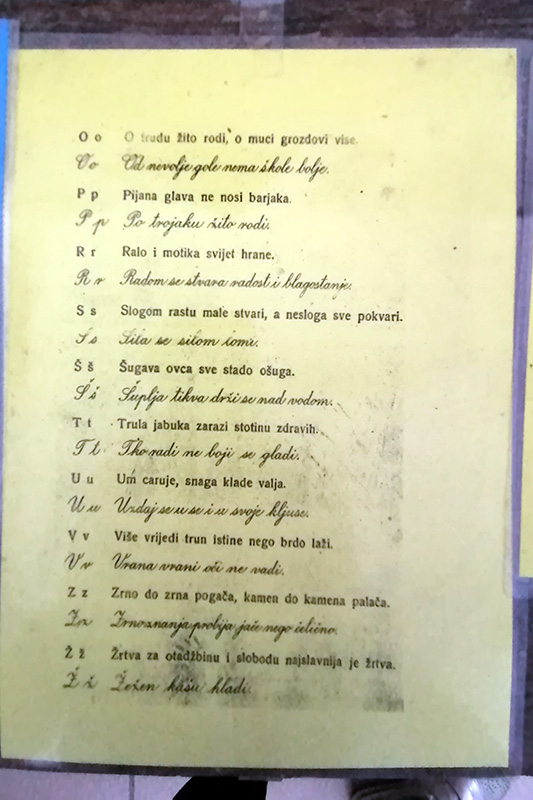 O o O trudu žito rodi, o muci grozdovi vise.
O o Od nevolje gole nema škole bolje.
P p Pijana glava ne nosi barjaka.
P p Po trojaku žito rodi.
R r Ralo i motika svijet hrane.
R r Radom se stvara radost i blagostanje.
S s Slogom rastu male stvari, a nesloga sve pokvari.
S s Sila se silom lomi.
Š š Šugava ovca sve stado ošuga.
Š š Šuplja tikva drži se nad vodom.
T t Trula jabuka zarazi stotinu zdravih.
T t Tko radi ne boji se gladi.
U u Um caruje, snaga klade valja.
U u Uzdaj se u se i u svoje kljuse.
V v Više vrijedi trun istine nego brdo laži.
V v Vrana vrani oči ne vadi.
Z z Zrno do zrna pogača, kamen do kamena palača.
Z z Zrno znanja probija jače nego čelično.
Ž ž Žrtva za otadžbinu i slobodu najslavnija je žrtva.
Ž ž Žežen kašu hladi.